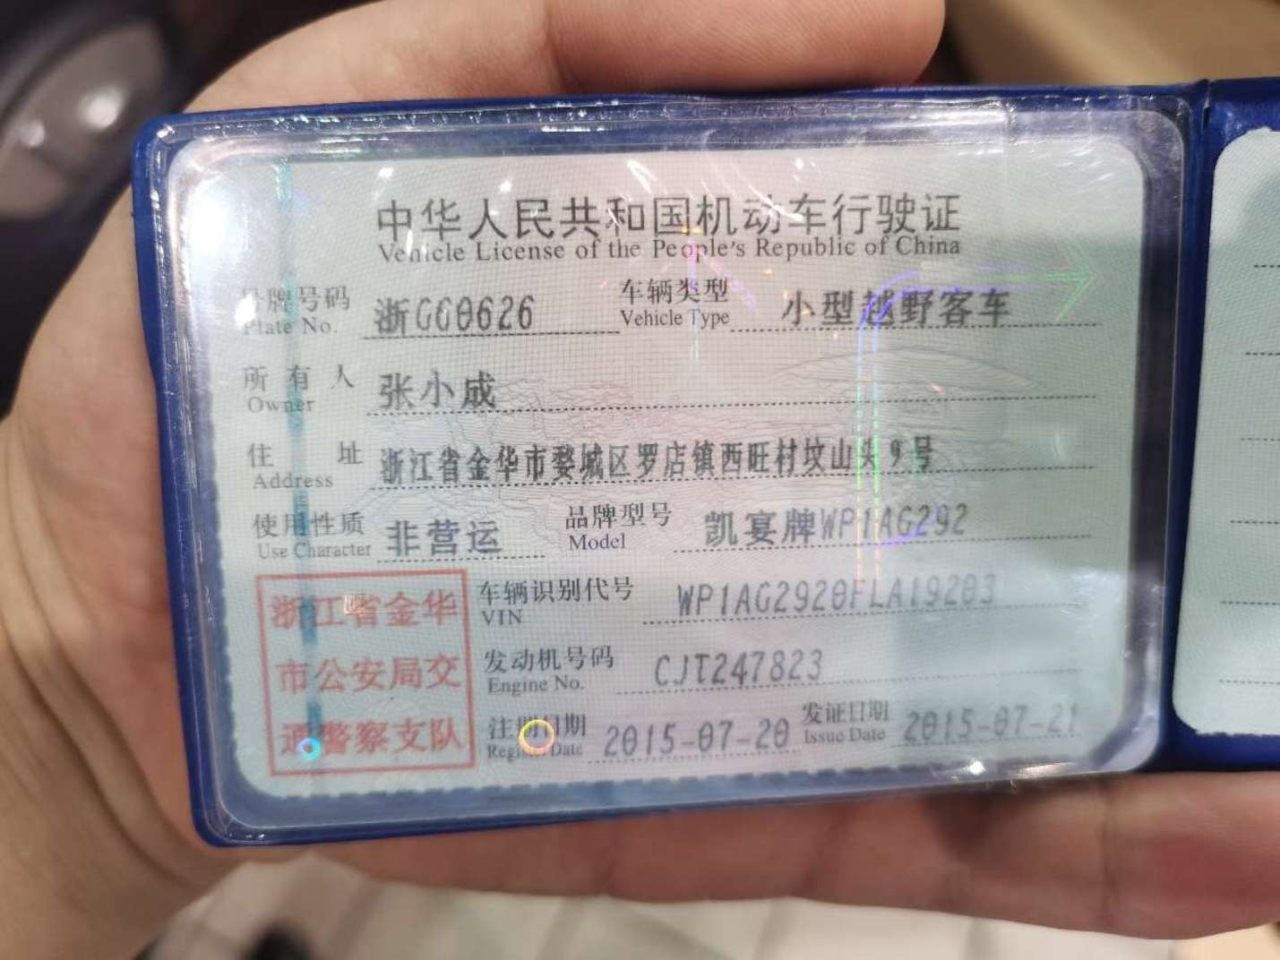 中华人民共和国机动车行驶证
Vehicle License of the People's Republic of China
号牌号码 浙GG0626 车辆类型 小型越野客车
Plate No. Vehicle Type
所有人 张小成
Owner
住址 浙江省金华市婺城区罗店镇西旺村坟山头9号
Address
使用性质 非营运 品牌型号 凯宴牌WP1AG292
Use Character Model
浙江省金华 车辆识别代号 WP1AG2920FLA19203
VIN
市公安局交 发动机号码 CJT247823
Engine No.
通警察支队 注册日期 2015-07-20 发证日期 2015-07-21
Register Date Issue Date